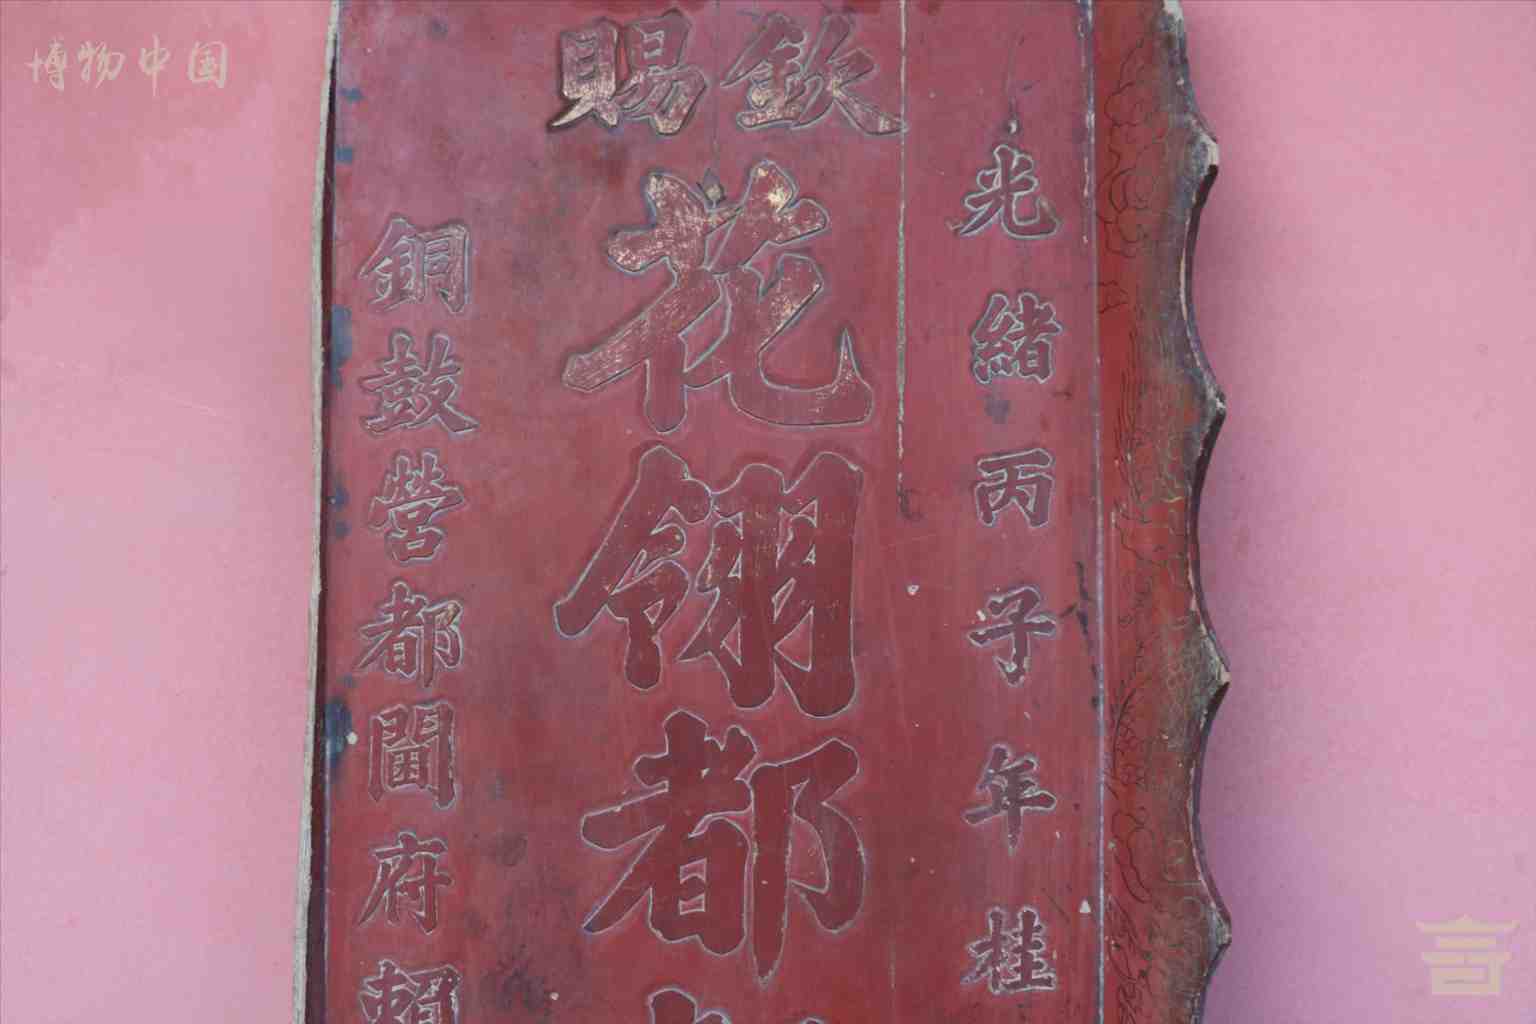 博物中国
光緒丙子年桂
欽賜
花翎都
銅鼓營都閫府賴